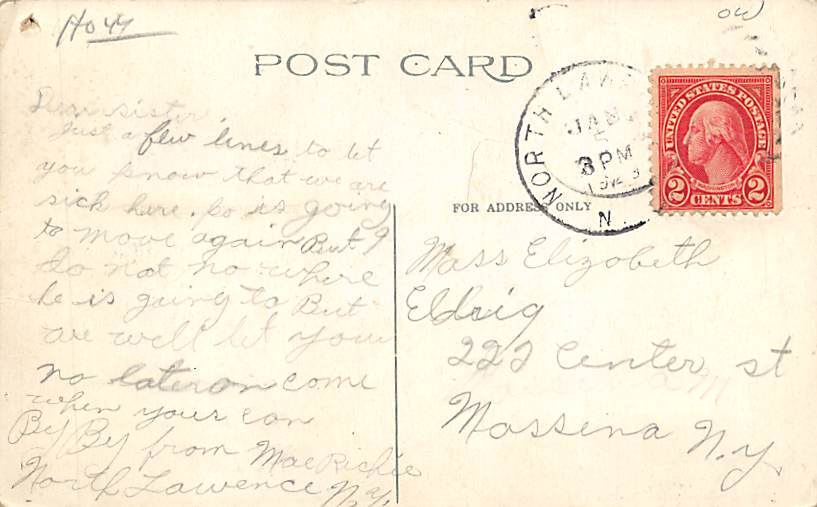 POST CARD
NORTH LAW
JAN
5
3 PM
192
N.
UNITED STATES POSTAGE
WASHINGTON
2 CENTS 2
FOR ADDRESS ONLY
Dear sister,
Just a few lines to let
you know that we are
sick here. is going
to move again But I
do not no where
he is going to But
we well let your
no later on come
when your can
By By from Mae Richie
North Lawence N.Y.
Miss Elizobeth
Eldrig
222 Center st
Massena N.Y.